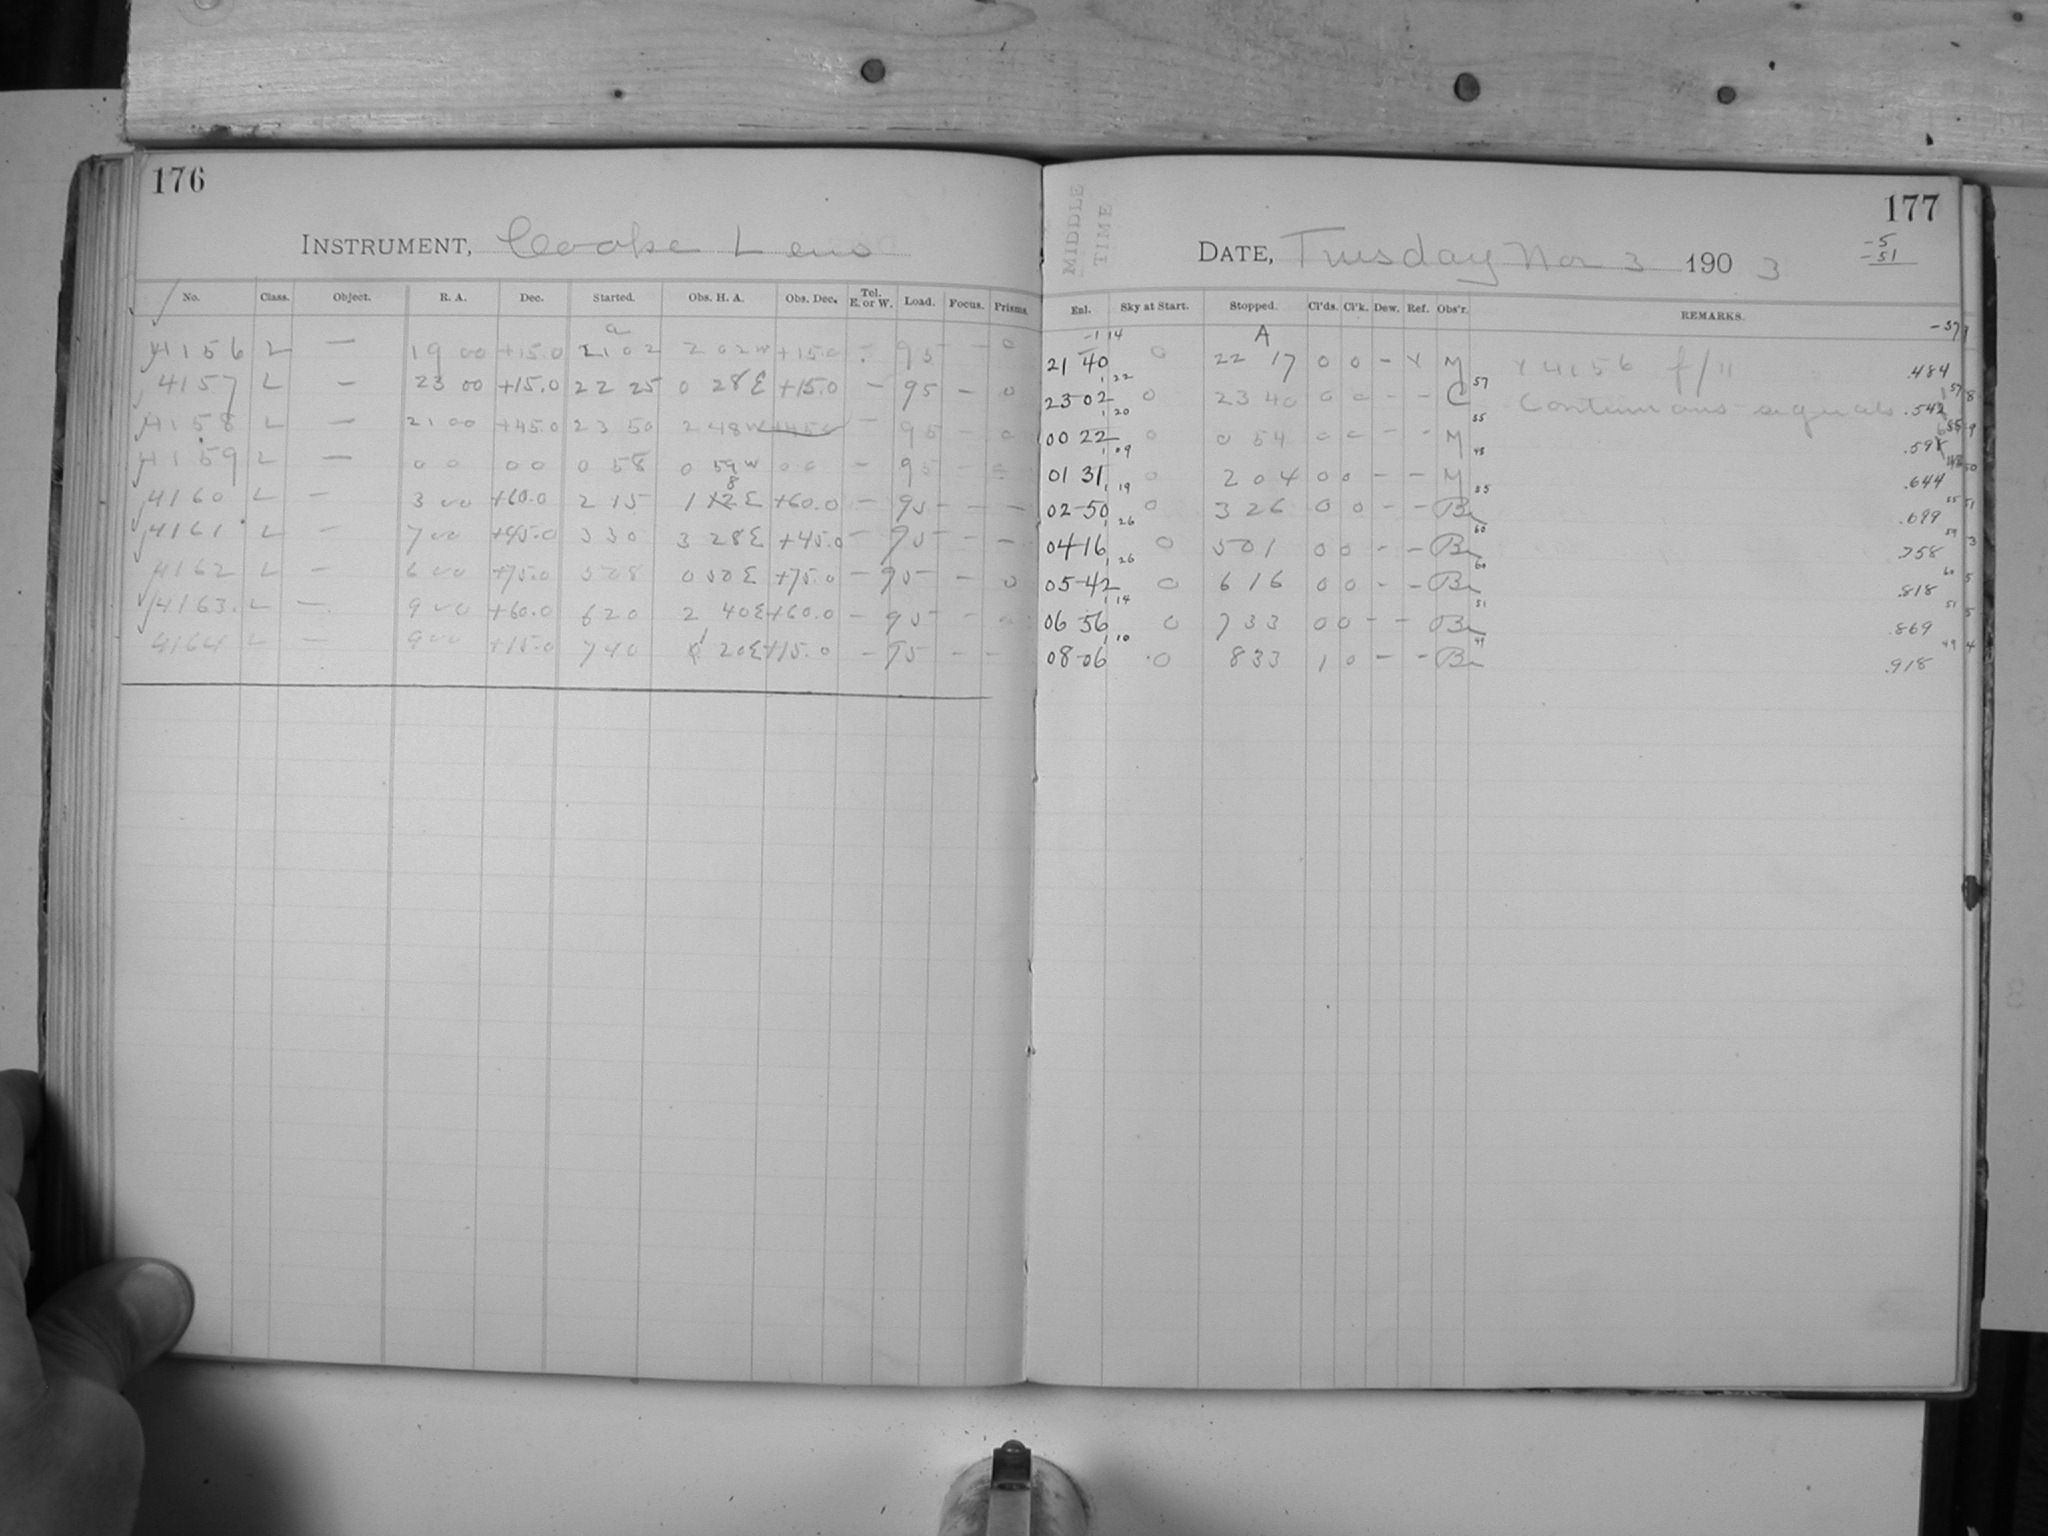 176
INSTRUMENT, Cooke Lens
No. Class. Object. R. A. Dec. Started. Obs. H. A. Obs. Dec. Tel. E. or W. Load. Focus. Prisms.
a
4156 L — 19 00 +15.0 21 02 2 02 W +15.0 - 95 - 0
4157 L — 23 00 +15.0 22 25 0 28 E +15.0 - 95 - 0
4158 L — 21 00 +45.0 23 50 2 48 W +45.0 - 95 - 0
4159 L — 0 0 0 0 0 58 0 59 W 0 0 - 95 -
4160 L — 3 00 +60.0 2 15 1 8 E +60.0 - 95 - -
4161 L — 7 00 +45.0 3 30 3 28 E +45.0 - 95 - -
4162 L — 6 00 +75.0 5 08 0 50 E +75.0 - 95 - 0
4163 L — 9 00 +60.0 6 20 2 40 E +60.0 - 95 -
4164 L — 9 00 +15.0 7 40 1 20 E +15.0 - 95 - -
177
MIDDLE TIME
DATE, Tuesday Nov 3 1903
-5
-51
Enl. Sky at Start. Stopped. Cl'ds. Cl'k. Dew. Ref. Obs'r. REMARKS.
-1 14 A -37
21 40 0 22 17 0 0 - x M x 4156 f/11 .484
1 22 57 57 8
23 02 0 23 40 0 0 - - C Continuous signals .542
1 20 55 55 9
00 22 0 0 54 0 0 - - M .598
1 09 48
01 31 0 2 04 0 0 - - M .644
1 19 55
02-50 0 3 26 0 0 - - Br .699
1 26 60 59 3
04 16 0 5 01 0 0 - - Br .758
1 26 60 60 5
05-42 0 6 16 0 0 - - Br .818
1 14 51 51 5
06 56 0 7 33 0 0 - - Br .869
1 10 49 49 4
08-06 0 8 33 1 0 - - Br .918